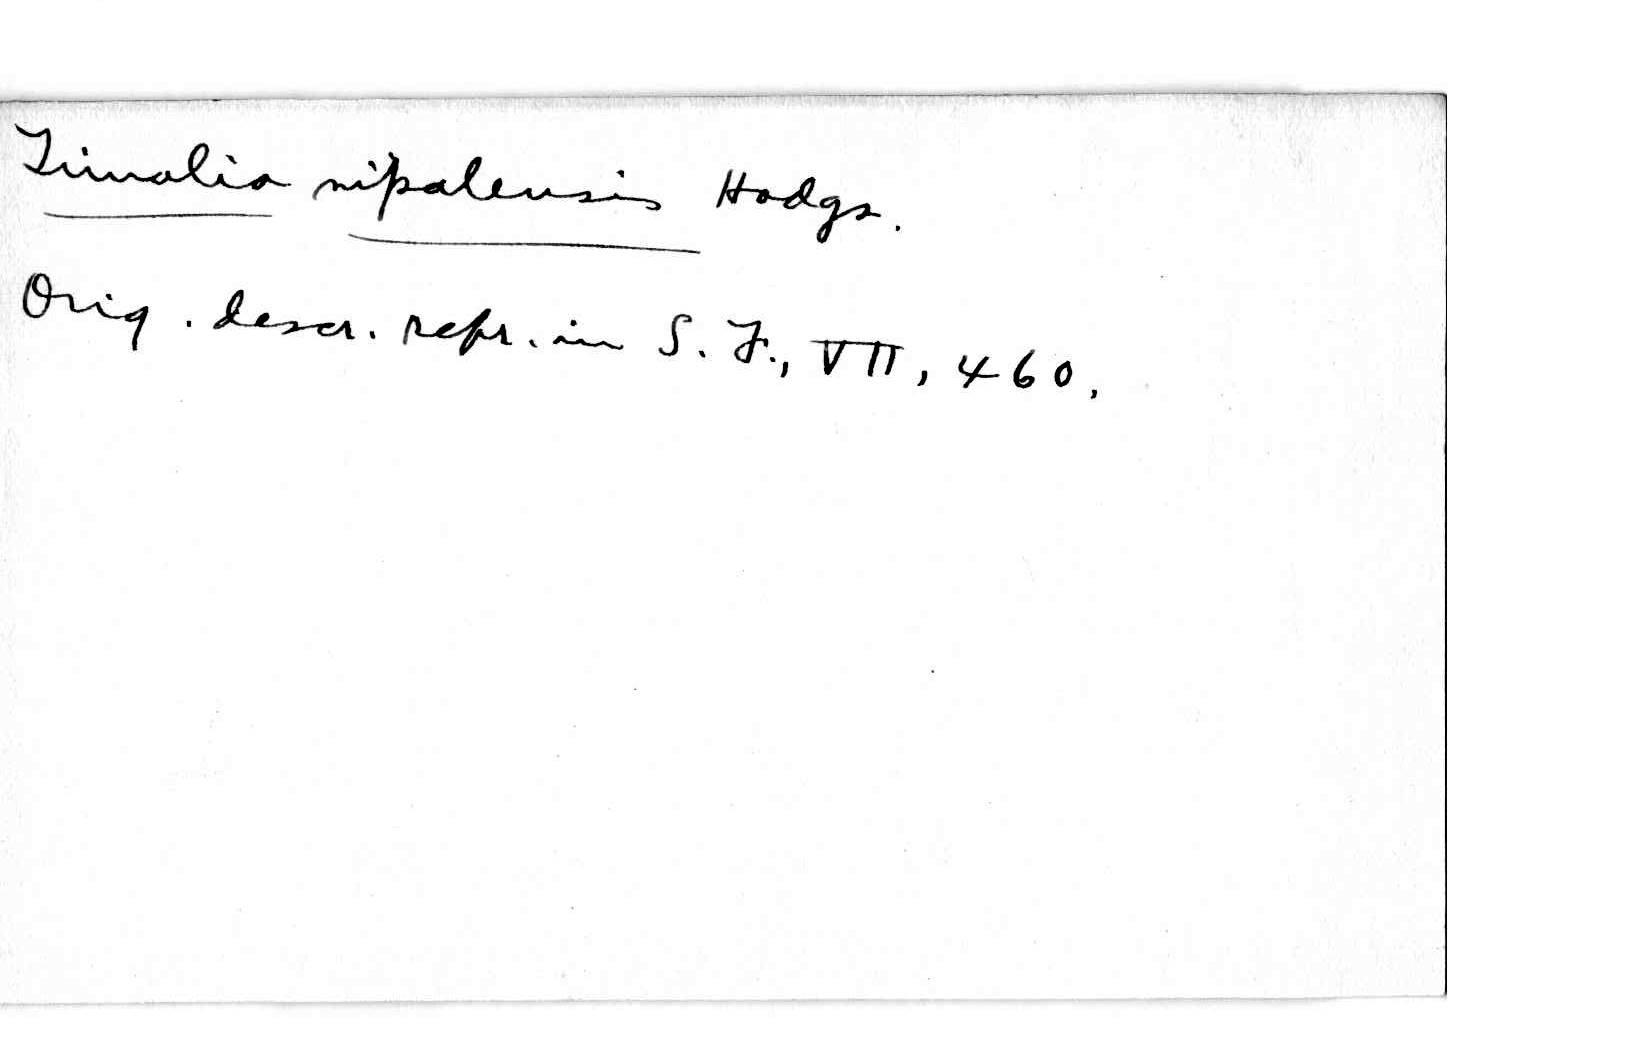 Timalia nipalensis Hodgs.
Orig. descr. repr. in S. F., VII, 460.